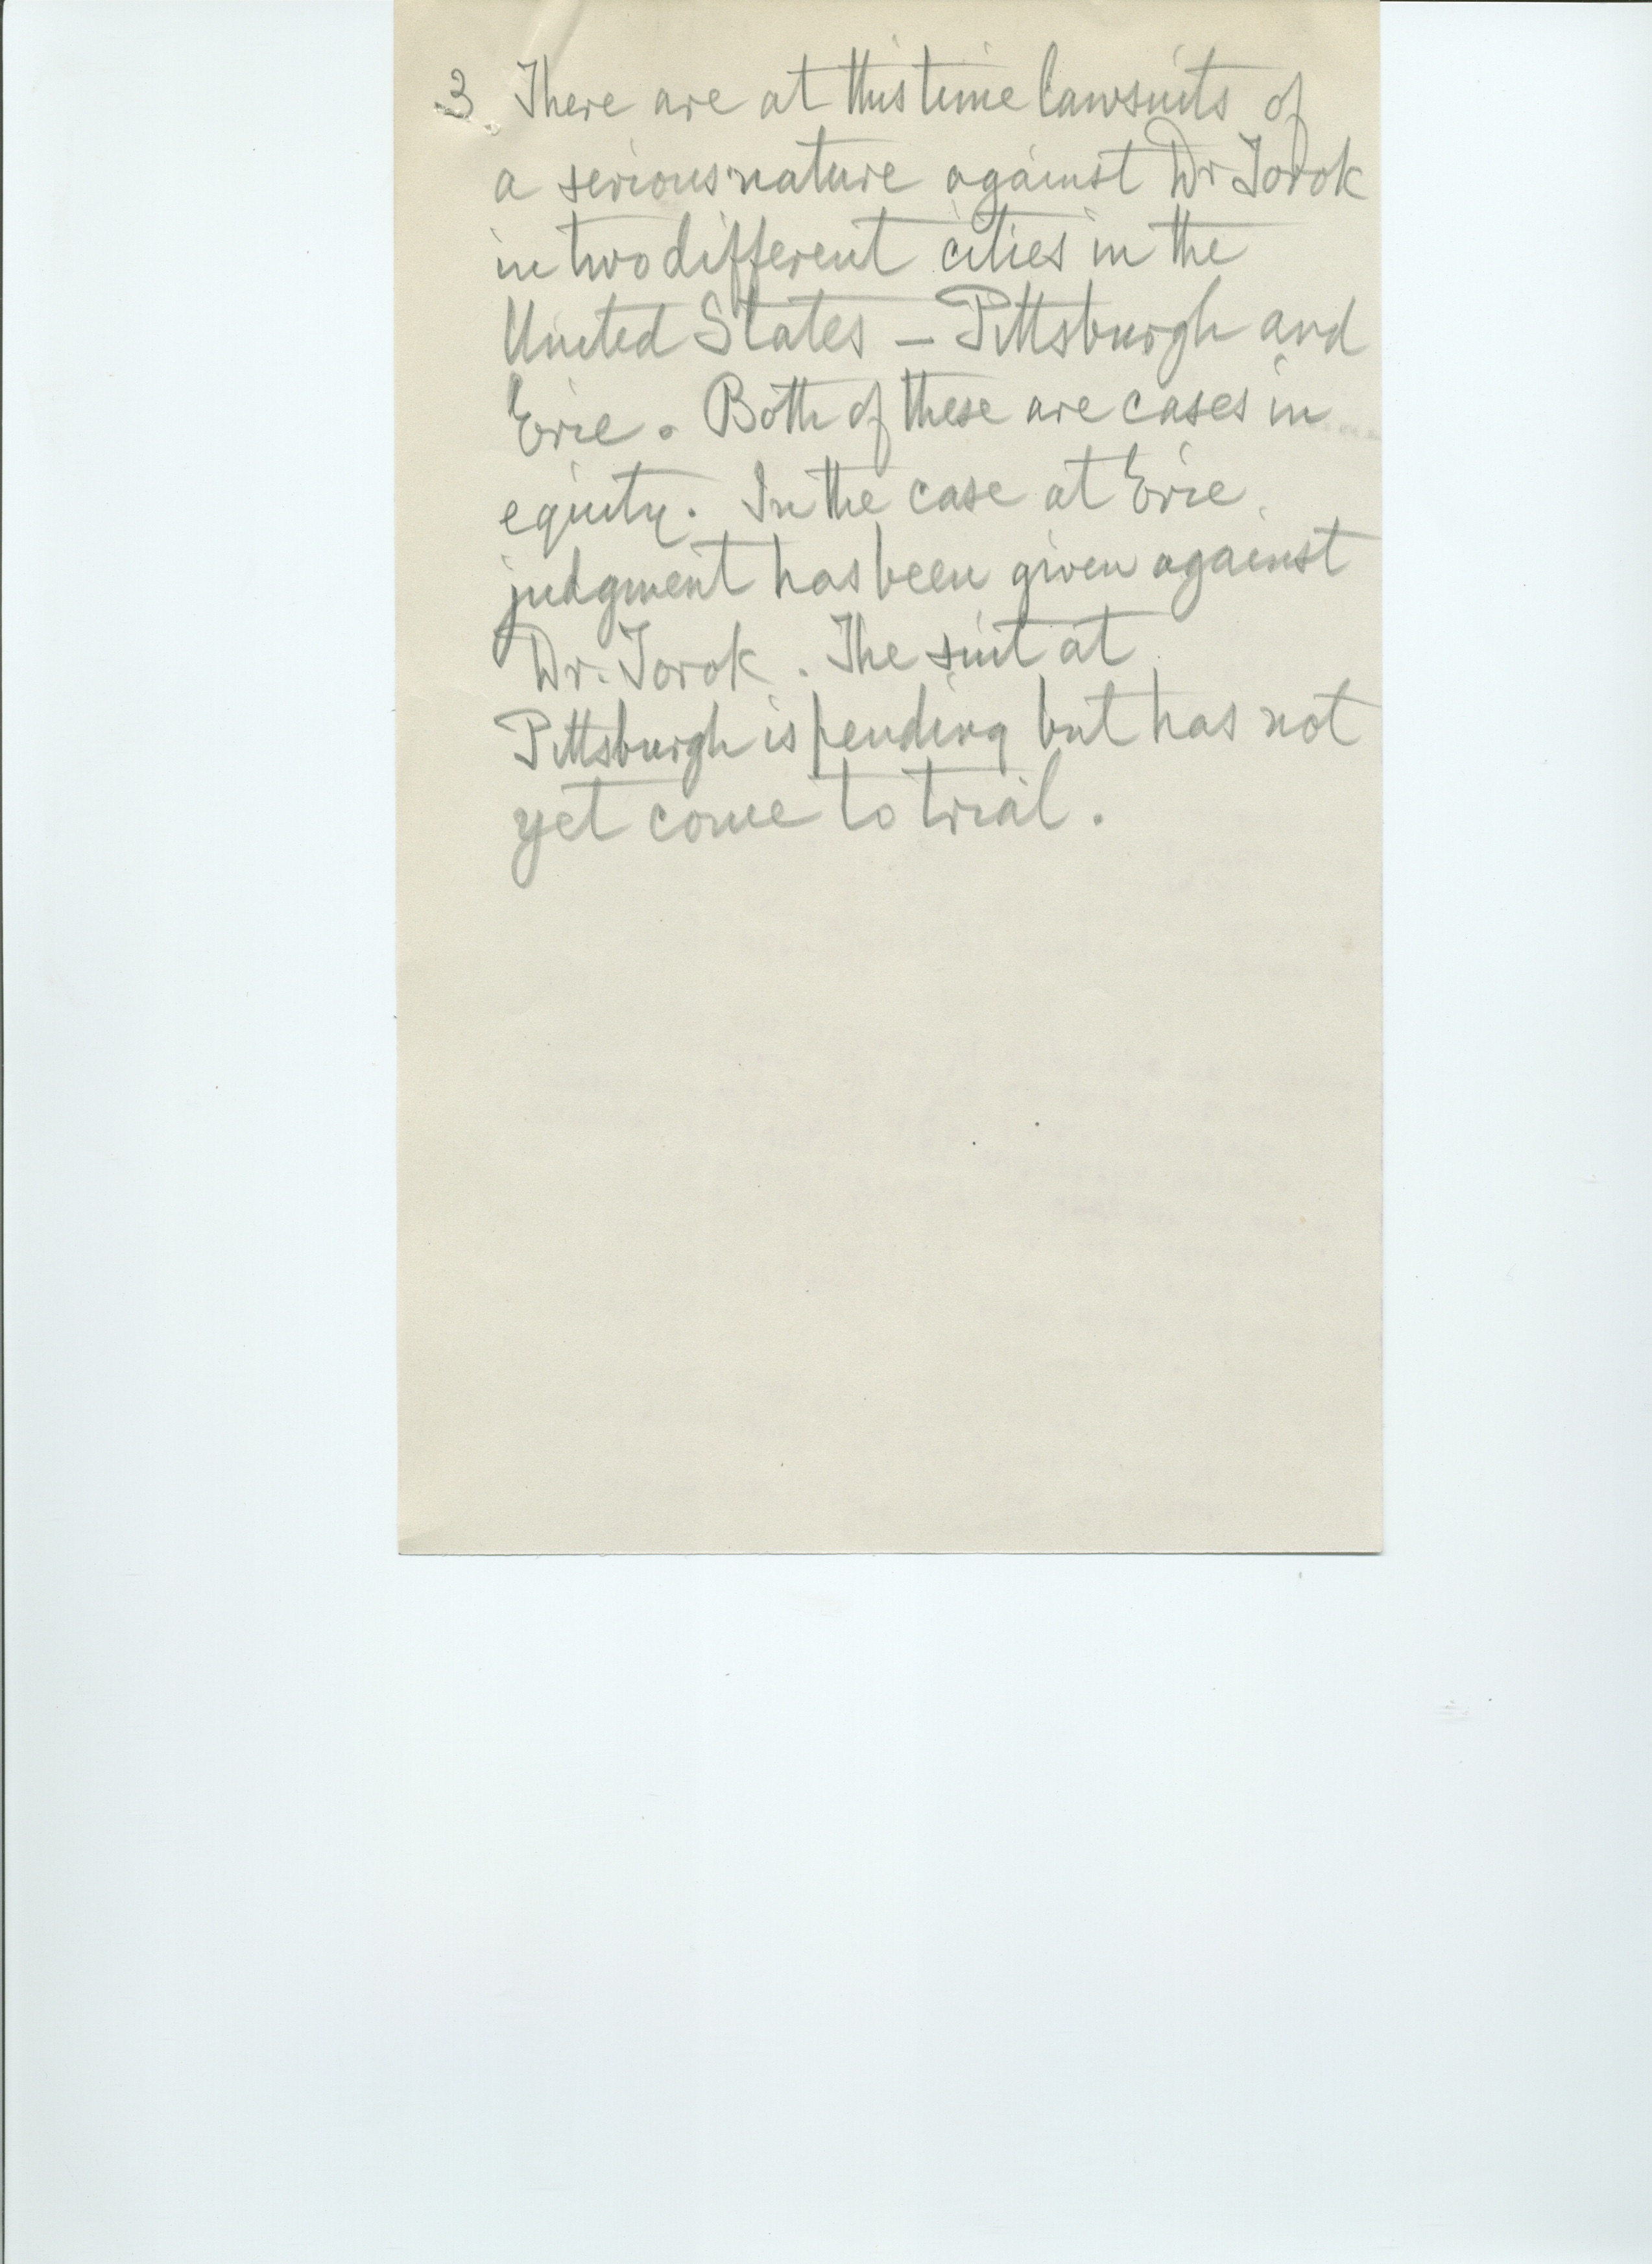 3. There are at this time lawsuits of
a serious nature against Dr Torok
in two different cities in the
United States – Pittsburgh and
Erie. Both of these are cases in
equity. In the case at Erie
judgment has been given against
Dr. Torok. The suit at
Pittsburgh is pending but has not
yet come to trial.